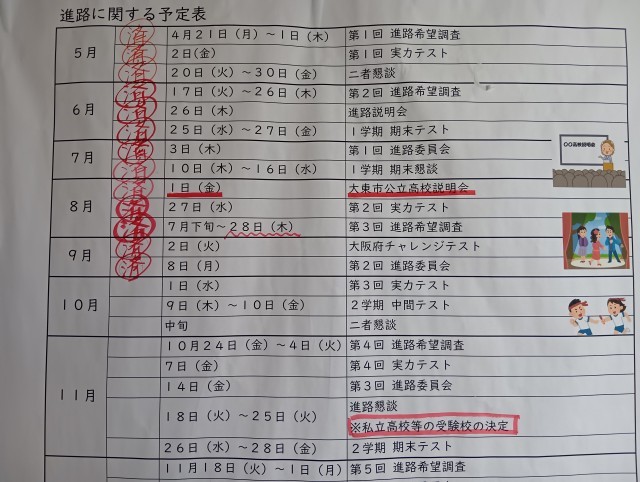 進路に関する予定表
5月
済 4月21日(月)~1日(木) 第1回 進路希望調査
済 2日(金) 第1回 実力テスト
済 20日(火)~30日(金) 二者懇談
6月
済 17日(火)~26日(木) 第2回 進路希望調査
済 26日(木) 進路説明会
済 25日(水)~27日(金) 1学期 期末テスト
7月
済 3日(木) 第1回 進路委員会
済 10日(木)~16日(水) 1学期 期末懇談
8月
済 1日(金) 大東市公立高校説明会
済 27日(水) 第2回 実力テスト
済 7月下旬~28日(木) 第3回 進路希望調査
9月
済 2日(火) 大阪府チャレンジテスト
済 8日(月) 第2回 進路委員会
10月
1日(水) 第3回 実力テスト
9日(木)~10日(金) 2学期 中間テスト
中旬 二者懇談
11月
10月24日(金)~4日(火) 第4回 進路希望調査
7日(金) 第4回 実力テスト
14日(金) 第3回 進路委員会
18日(火)~25日(火) 進路懇談
※私立高校等の受験校の決定
26日(水)~28日(金) 2学期 期末テスト
11月18日(火)~1日(月) 第5回 進路希望調査
〇〇高校説明会